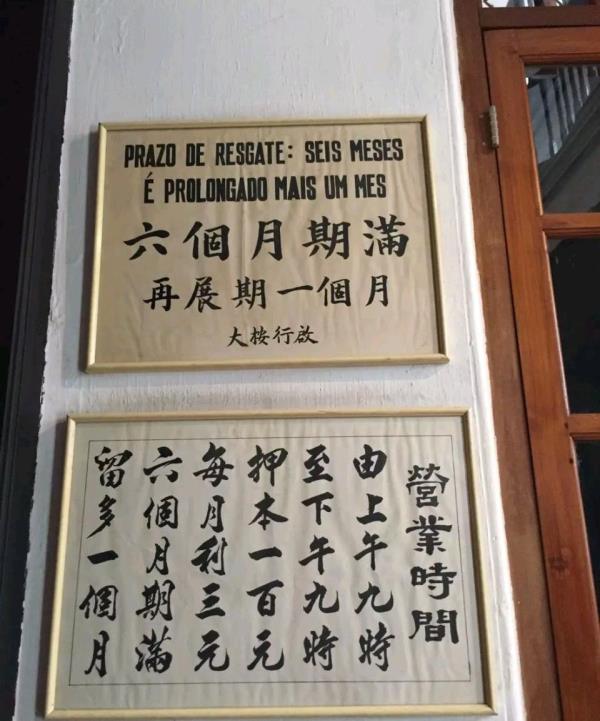 PRAZO DE RESGATE: SEIS MESES
É PROLONGADO MAIS UM MES
六個月期滿
再展期一個月
大按行啟
營業時間
由上午九時
至下午九時
押本一百元
每月利三元
六個月期滿
留多一個月